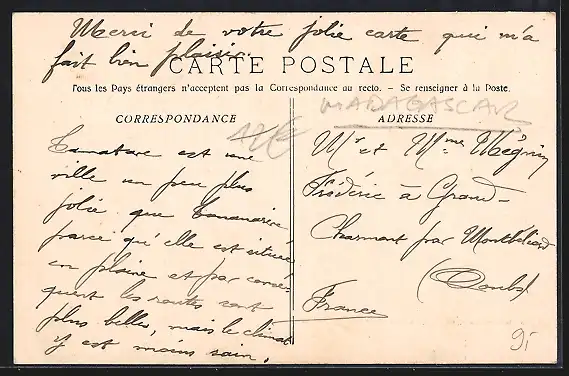 Merci de votre jolie carte qui m'a
fait bien plaisir.
CARTE POSTALE
Tous les Pays étrangers n'acceptent pas la Correspondance au recto. - Se renseigner à la Poste.
MADAGASCAR
CORRESPONDANCE
ADRESSE
12€
Tamatave est une
ville un peu plus
jolie que Tananarive
parce qu'elle est située
en plaine et par consé-
quent les routes sont
plus belles, mais le climat
y est moins sain.
Mr et Mme Mégnin
Frédéric à Grand-
Charmont par Montbéliard
(Doubs)
France